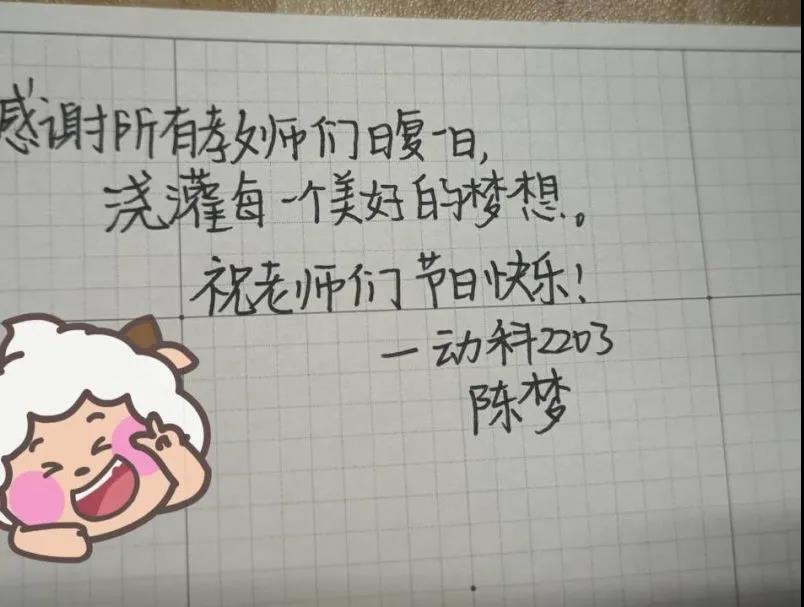 感谢所有教师们日复一日,
浇灌每一个美好的梦想。
祝老师们节日快乐!
一动科2203
陈梦